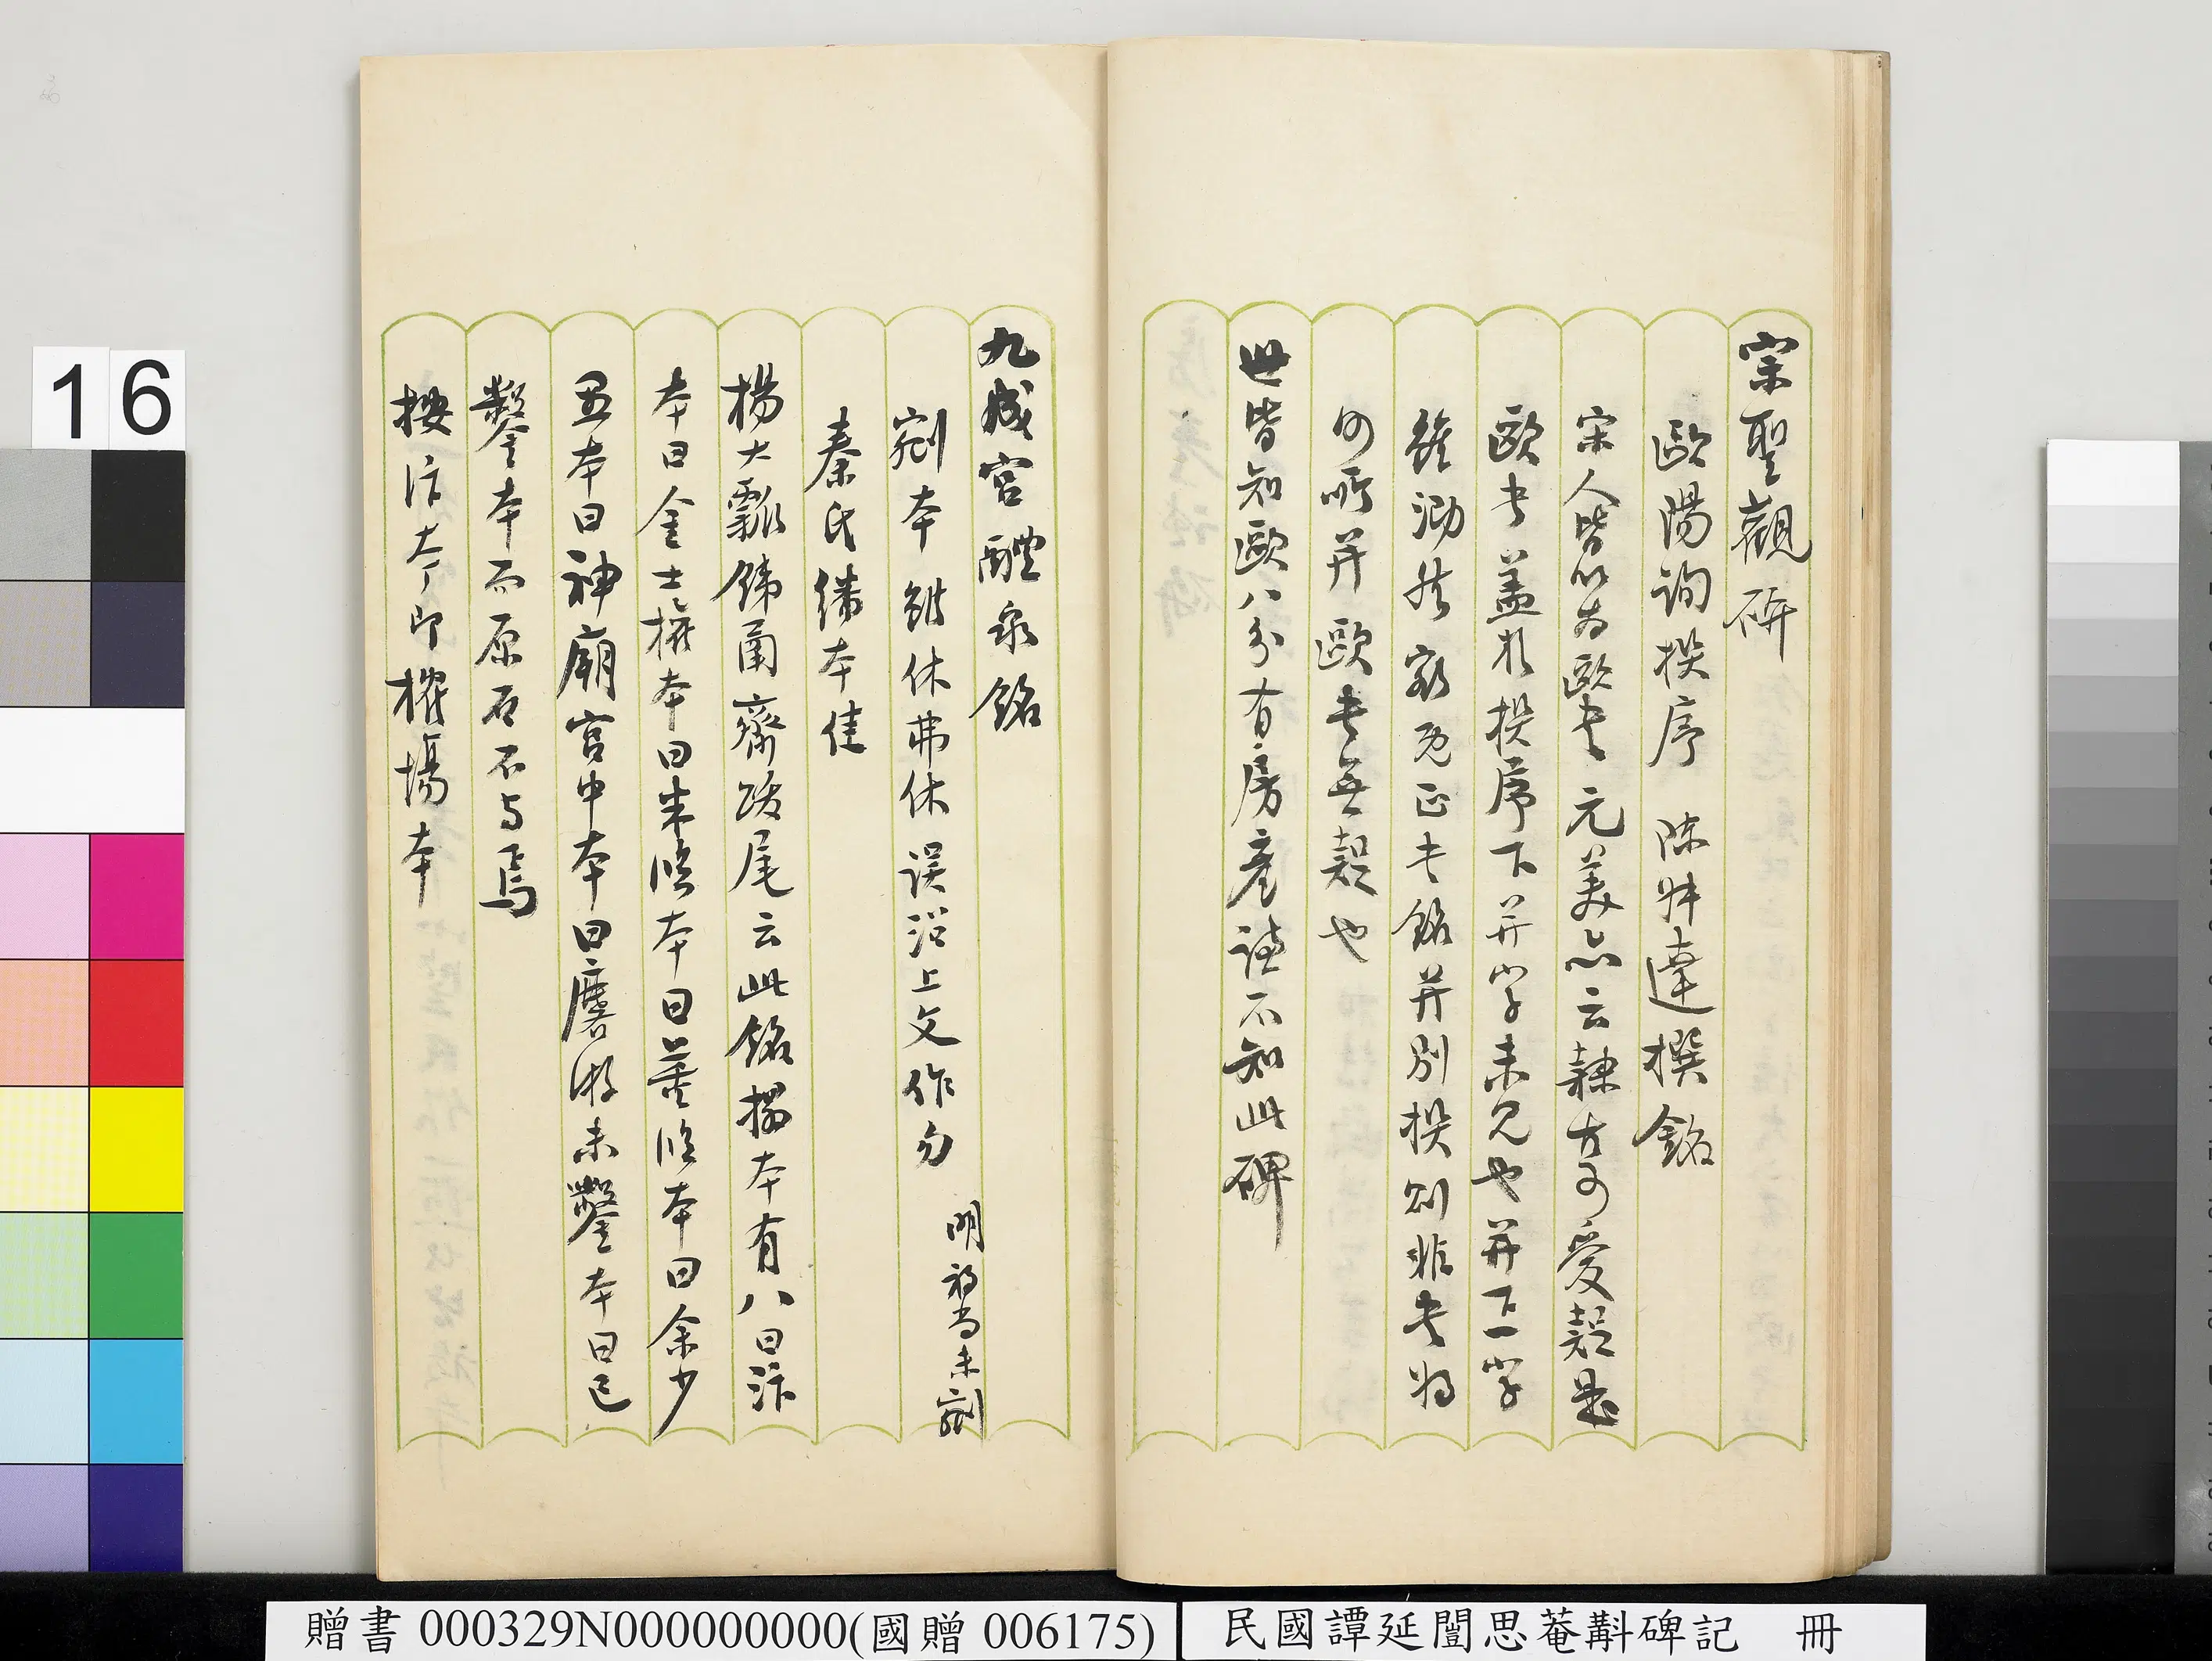 宗聖觀碑
歐陽詢撰序 陳叔達撰銘
宋人皆以為歐書 元美亦云隸古可愛疑是
歐書蓋於撰序下并字未見也并下一字
雖泐然審為正書銘并別撰則非書將
何所并 歐書無疑也
世皆知歐八分有房彥謙不知此碑
九成宮醴泉銘
剜本 雖休弗休 誤沿上文作勿 明初尚未剜
秦氏繙本佳
楊大瓢錫甬齋跋尾云此銘搨本有八曰汴
本曰金士權本曰米臨本曰董臨本曰余少
丑本曰神廟宮中本曰麐游未鑿本曰已
鑿本而原石不与焉
按汴本即榷場本
16
贈書000329N000000000(國贈006175)
民國譚延闓思菴斠碑記 冊